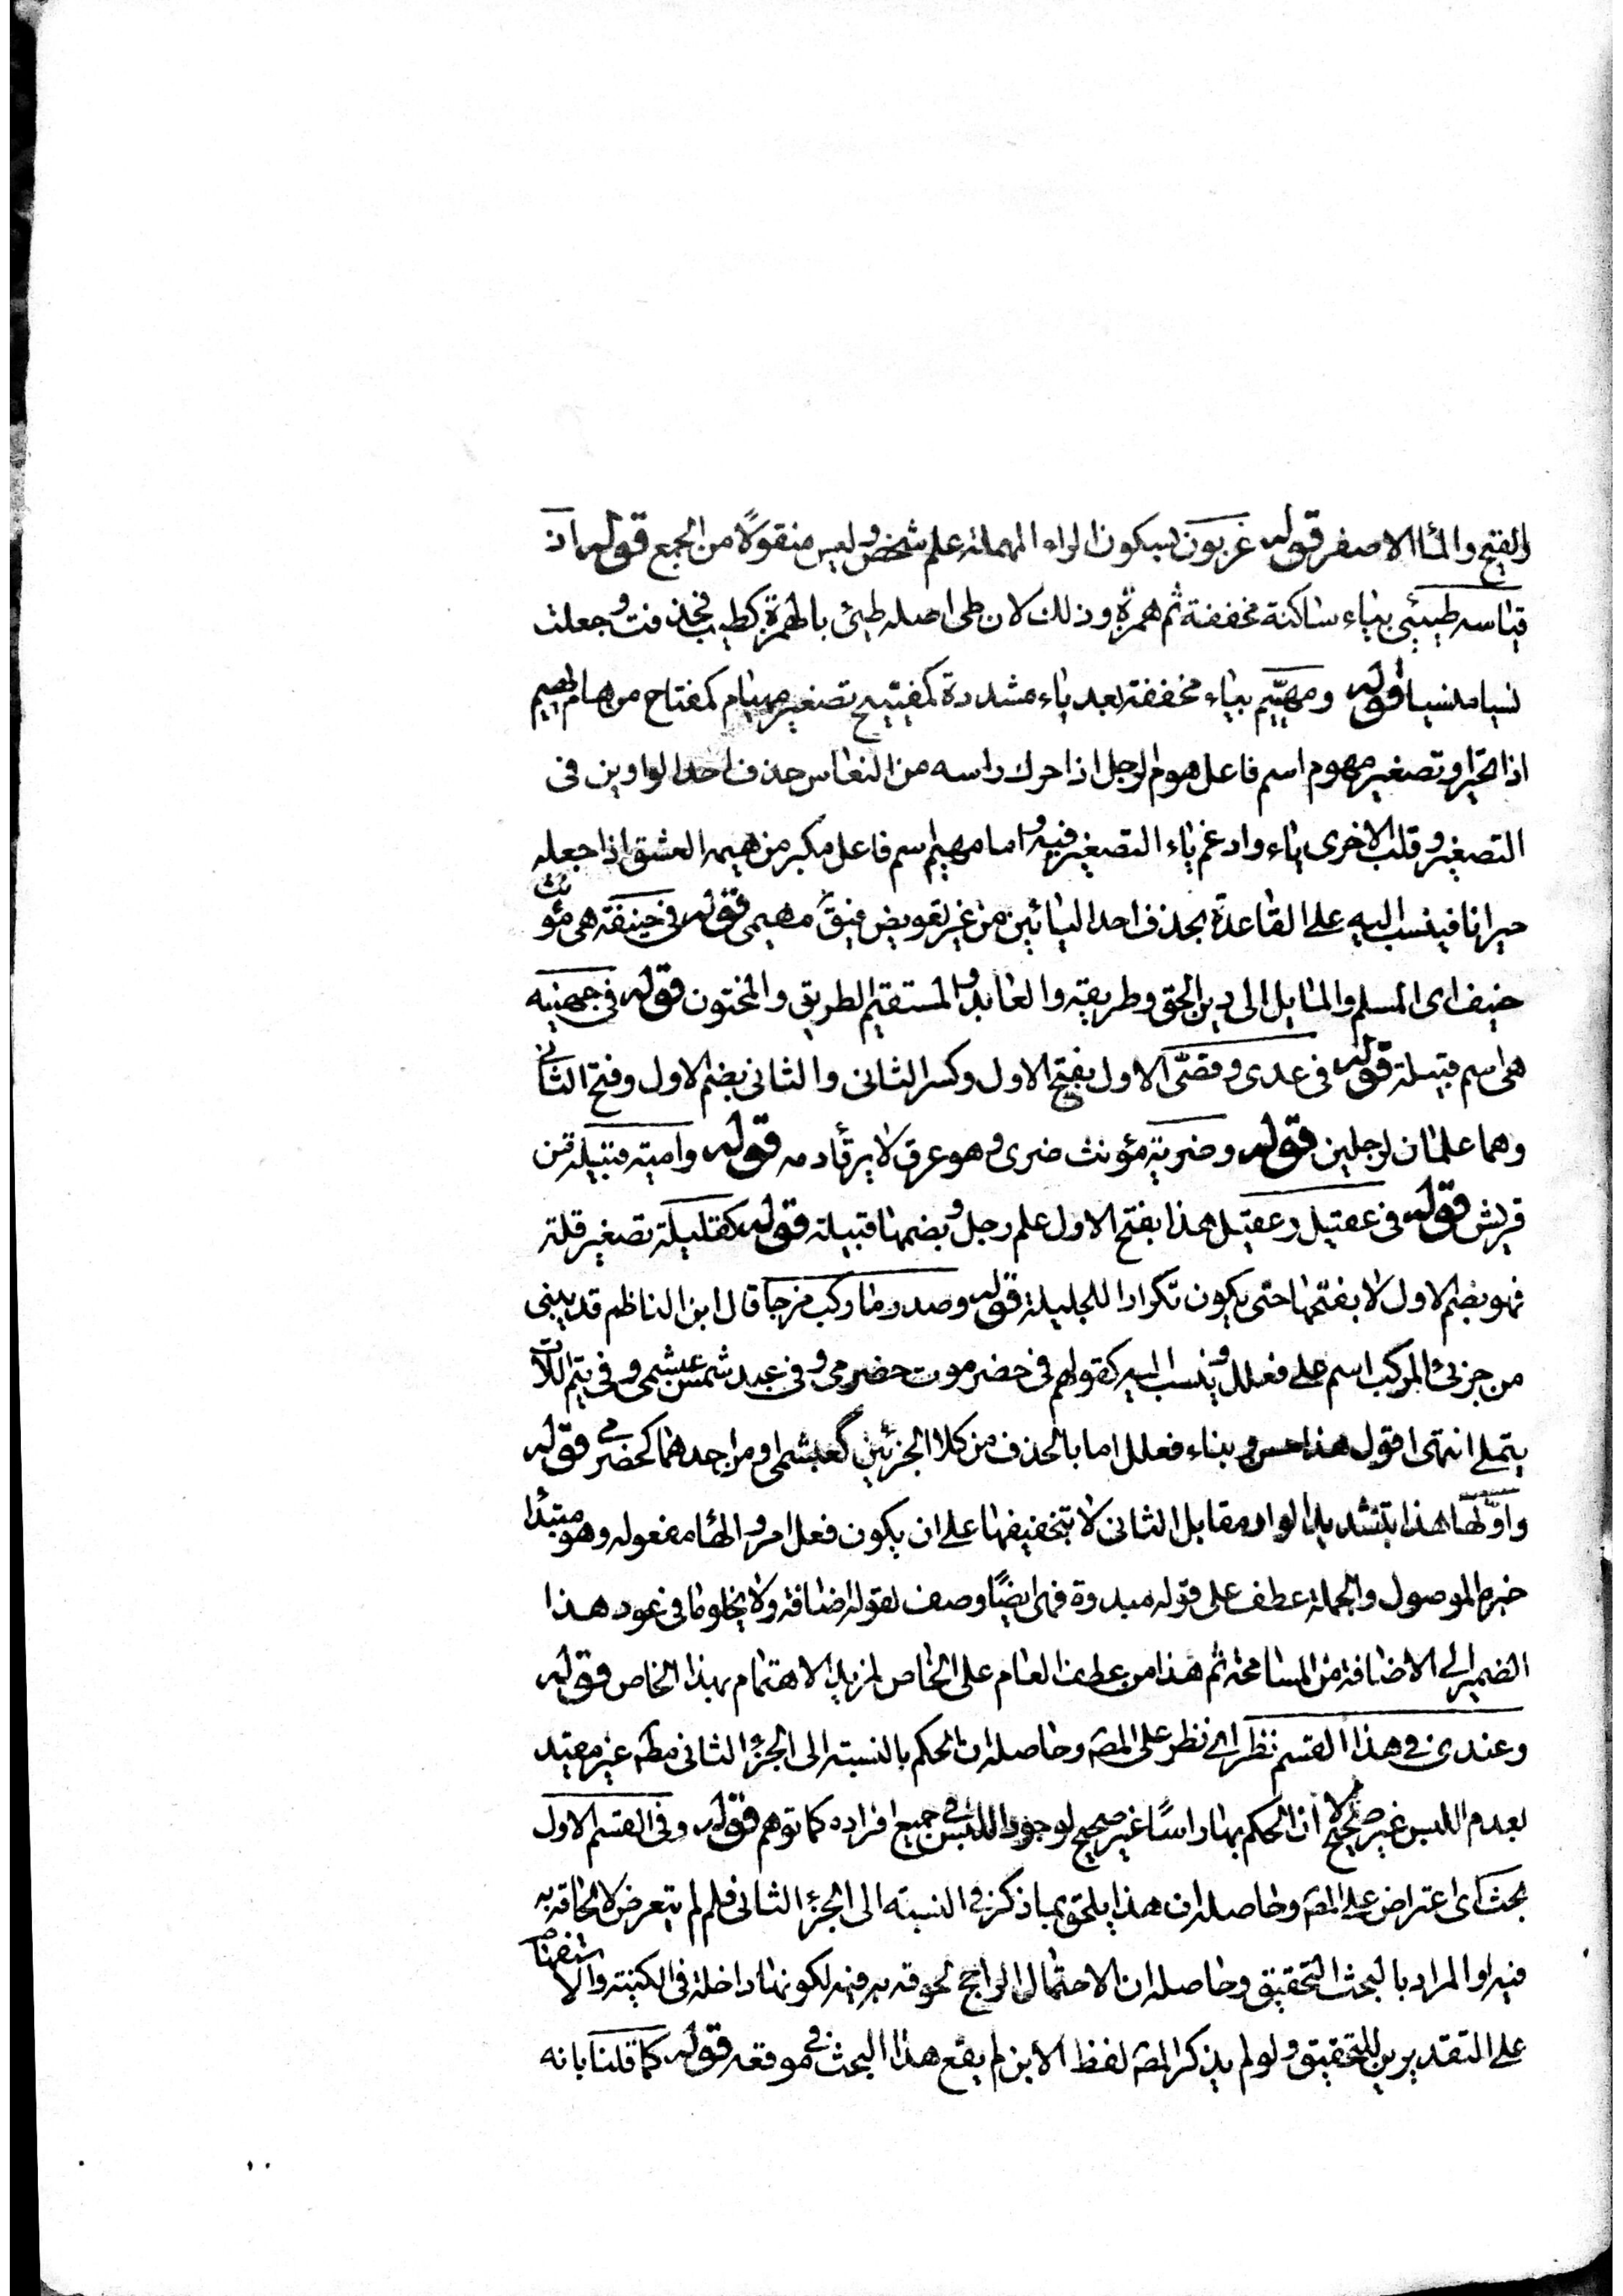 والفتح والماء الاصفر قوله غربون بسكون الراء المهملة علم شخص وليس منقولًا من الجمع قوله اذ
قياسه طيئى بياء ساكنة مخففة ثم همزة وذلك لان طى اصله طيئ بالهمزة كطيب فحذفت وجعلت
نسيا منسيا قوله ومهيّيم بياء مخففة بعد ياء مشددة كمفيتيح تصغير مهيام كمفتاح من هام يهيم
اذا تحير او تصغير مهوم اسم فاعل هوم الرجل اذا حرك راسه من النعاس حذف احد الواوين فى
التصغير وقلب الاخرى ياء وادغم ياء التصغير فيه واما مهيم اسم فاعل مكبر من هيمه العشق اذا جعله
حيرانا فينسب اليه على القاعدة بحذف احد اليائين من غير تعويض فيقَ مهيمى قوله فى حنيفة هى مؤنث
حنيف اى المسلم والمايل الى دين الحق وطريقه والعابد والمستقيم الطريق والمختون قوله فى جهينه
هى اسم قبيلة قوله فى عدى وقصّى الاول بفتح الاول وكسر الثانى والثانى بضم الاول وفتح الثانى
وهما علمان لرجلين قوله وضرية مؤنث ضرى وهو عرق لا يرقأ دمه قوله وامية قبيلة من
قريش قوله فى عقيل وعقيل هذا بفتح الاول علم رجل وبضمها قبيلة قوله كقليلة تصغير قلة
فهو بضم الاول لا بفتحها حتى يكون تكرارا للجليلة قوله وصدر ما ركب مزجا قال ابن الناظم قد يبنى
من جزئى المركب اسم على فعلل وينسب اليه كقولهم فى حضر موت حضرمى وفى عبد شمس عبشمى وفى تيم اللات
يتملى انتهى اقول هذا حسن وبناء فعلل اما بالحذف من كلا الجزئين كعبشمى او من احدهما كحضرمى قوله
واوّلها هذا بتشديد الواو مقابل الثانى لا بتخفيفها على ان يكون فعل امر والهاء مفعوله وهو مبتدأ
خبره الموصول والجملة عطف على قوله مبدوة فهى ايضًا وصف لقوله اضافة ولا يخلو ما فى عود هذا
الضمير الى الاضافة من المسامحة ثم هذا من عطف العام على الخاص لمزيد الاهتمام بهذا الخاص قوله
وعندى فى هذا القسم نظر اى نظر على المصَ وحاصله ان الحكم بالنسبة الى الجزء الثانى مطَ غير مقيد
بعدم اللبس غير صحيح لا ان الحكم بها راسًا غير صحيح لوجود اللبس فى جميع افراده كما توهم قوله وفى القسم الاول
بحث اى اعتراض على المصَ وحاصله ان هذا يلحق بما ذكر فى النسبة الى الجزء الثانى فلم لم يتعرض لالحاقه به
فيه او المراد بالبحث التحقيق وحاصله ان الاحتمال الراجح لحوقه به فيه لكونها داخلة فى الكنية والاستفهام
على التقديرين للتحقيق ولو لم يذكر المصَ لفظ الابن لم يقع هذا البحث فى موقعه قوله كما قلنا بانه